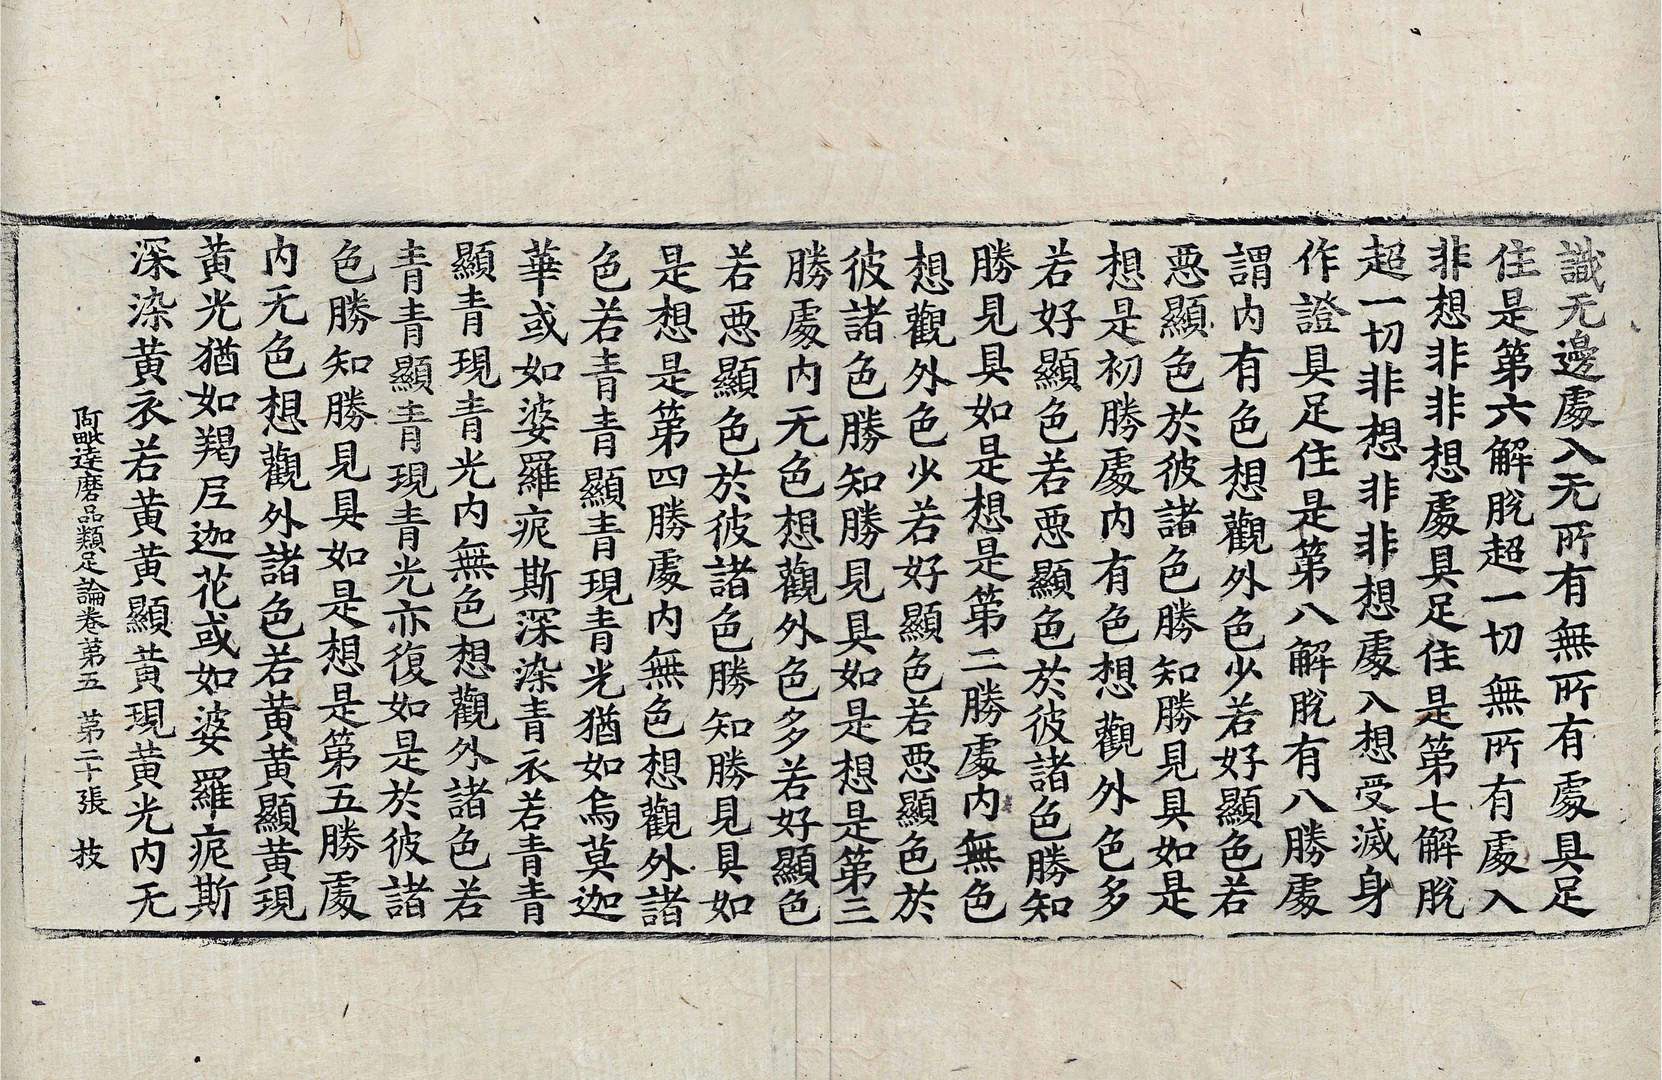 識无邊處入无所有無所有處具足
住是第六解脫超一切無所有處入
非想非非想處具足住是第七解脫
超一切非想非非想處入想受滅身
作證具足住是第八解脫有八勝處
謂內有色想觀外色少若好顯色若
惡顯色於彼諸色勝知勝見具如是
想是初勝處內有色想觀外色多
若好顯色若惡顯色於彼諸色勝知
勝見具如是想是第二勝處內無色
想觀外色少若好顯色若惡顯色於
彼諸色勝知勝見具如是想是第三
勝處內无色想觀外色多若好顯色
若惡顯色於彼諸色勝知勝見具如
是想是第四勝處內無色想觀外諸
色若青青顯青現青光猶如烏莫迦
華或如婆羅痆斯深染青衣若青青
顯青現青光內無色想觀外諸色若
青青顯青現青光亦復如是於彼諸
色勝知勝見具如是想是第五勝處
內无色想觀外諸色若黃黃顯黃現
黃光猶如羯尼迦花或如婆羅痆斯
深染黃衣若黃黃顯黃現黃光內无
阿毗達磨品類足論卷第五 第二十張 技